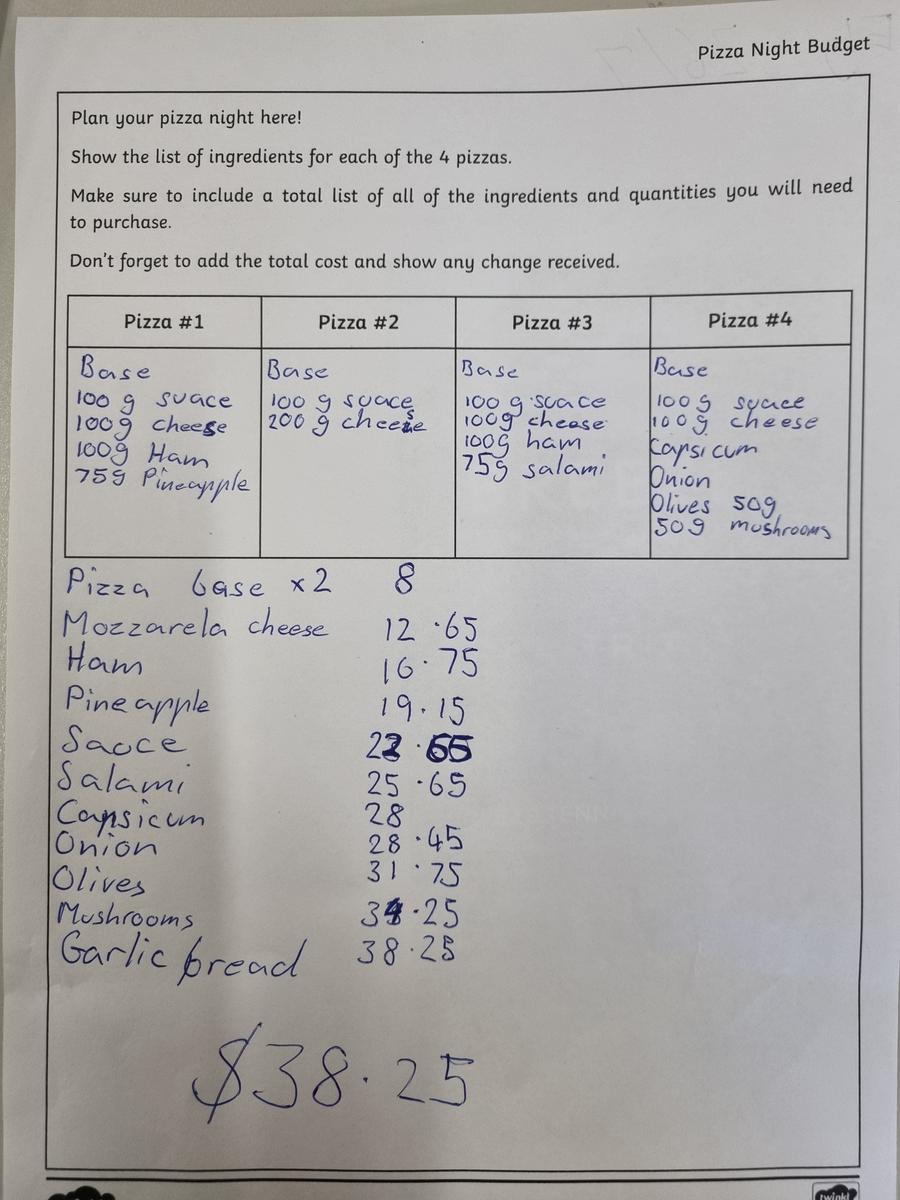 Pizza Night Budget
Plan your pizza night here!
Show the list of ingredients for each of the 4 pizzas.
Make sure to include a total list of all of the ingredients and quantities you will need
to purchase.
Don't forget to add the total cost and show any change received.
Pizza #1
Base
100 g suace
100g cheese
100g Ham
75g Pineapple
Pizza #2
Base
100 g suace
200 g cheese
Pizza #3
Base
100 g suace
100g cheese
100g ham
75g salami
Pizza #4
Base
100 g suace
100g cheese
Capsicum
Onion
Olives 50g
50g mushrooms
Pizza base x2 8
Mozzarela cheese 12.65
Ham 16.75
Pineapple 19.15
Saoce 22.65
Salami 25.65
Capsicum 28
Onion 28.45
Olives 31.75
Mushrooms 34.25
Garlic bread 38.25
$38.25
twinkl